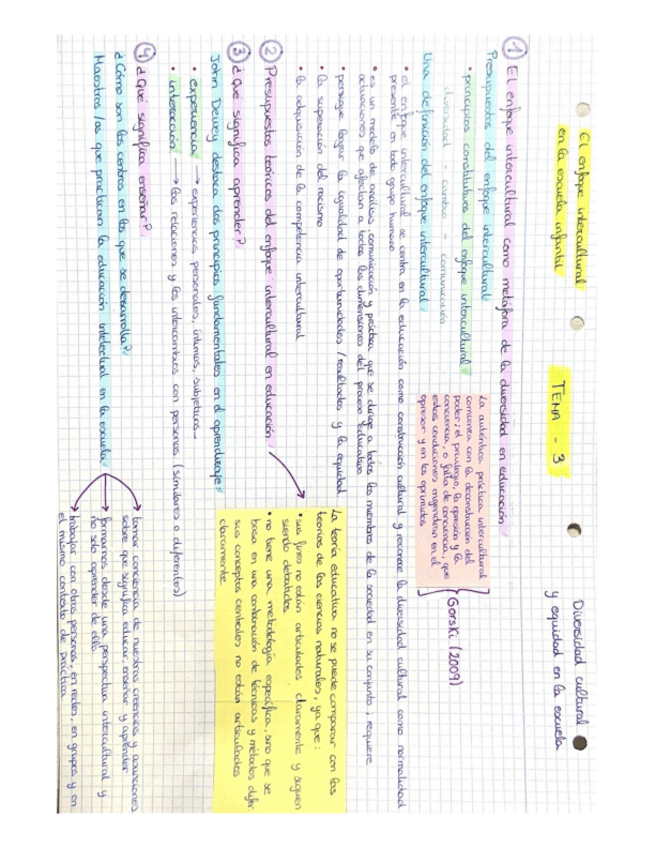 El enfoque intercultural
en la escuela infantil
TEMA - 3
Diversidad cultural
y equidad en la escuela
1 El enfoque intercultural como metáfora de la diversidad en educación
Presupuestos del enfoque intercultural
• principios constitutivos del enfoque intercultural
diversidad - cambio - comunicación
Una definición del enfoque intercultural
La auténtica práctica intercultural
comienza con la deconstrucción del
poder; el privilegio, la opresión y la
conciencia, o falta de conciencia, que
estas condiciones engendran en el
opresor y en los oprimidos
Gorski (2009)
• el enfoque intercultural se centra en la educación como construcción cultural y reconoce la diversidad cultural como normalidad
presente en todo grupo humano
• es un modelo de análisis, comunicación y práctica que se dirige a todos los miembros de la sociedad en su conjunto; requiere
actuaciones que afectan a todas las dimensiones del proceso educativo
• persigue lograr la igualdad de oportunidades / resultados y la equidad
• la superación del racismo
• la adquisición de la competencia intercultural
2 Presupuestos teóricos del enfoque intercultural en educación
La teoría educativa no se puede comparar con las
teorías de las ciencias naturales, ya que:
• sus fines no están articulados claramente y siguen
siendo debatidos
• no tiene una metodología específica, sino que se
basa en una combinación de técnicas y métodos difer.
sus conceptos centrales no están articulados
claramente
3 ¿Qué significa aprender?
John Dewey destaca dos principios fundamentales en el aprendizaje:
• experiencia → experiencias personales, íntimas, subjetivas...
• interacción → las relaciones y los intercambios con personas (similares o diferentes)
4 ¿Qué significa enseñar?
¿Cómo son los centros en los que se desarrolla?
Maestros /as que practican la educación intelectual en la escuela
tomar conciencia de nuestras creencias y asunciones
sobre que significa educar, enseñar y aprender
formarnos desde una perspectiva intercultural y
no solo aprender de ello
trabajar con otras personas, en redes, en grupos y en
el mismo contexto de práctica